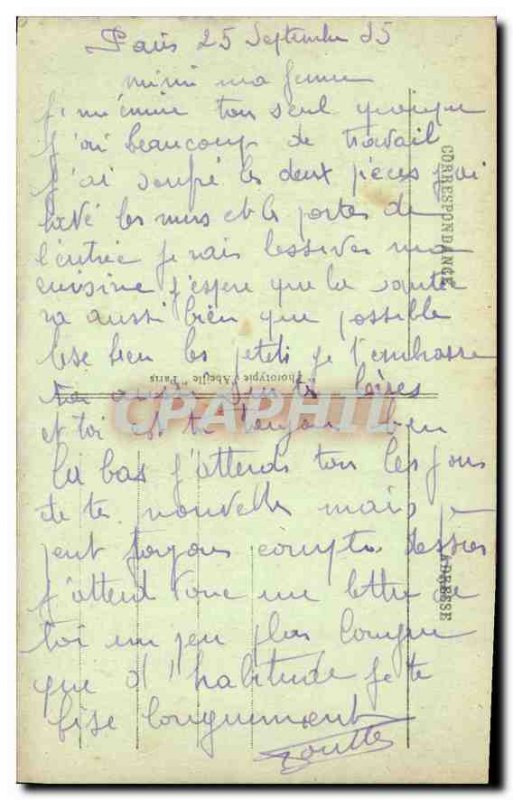 Paris 25 Septembre 35
mimi ma femme
je m'ennuie tou seul quoique
j'ai beaucoup de travail
j'ai les deux pièces j'ai
lavé les murs et le portes de
l'entrée je vais lessiver ma
cuisine j'espere que la santé
va aussi bien que possible
bise bien les petits je t'embrasse
et toi es tu toujours bien
la bas j'attends tou les jours
de te nouvelle mais je
peut toujours compte dessus
j'attend donc un lettre de
toi un peu plus longue
que d'habitude je te
bise longuement
CORRESPONDANCE
Phototypie "Abeille" Paris
CPAPHIL
ADRESSE